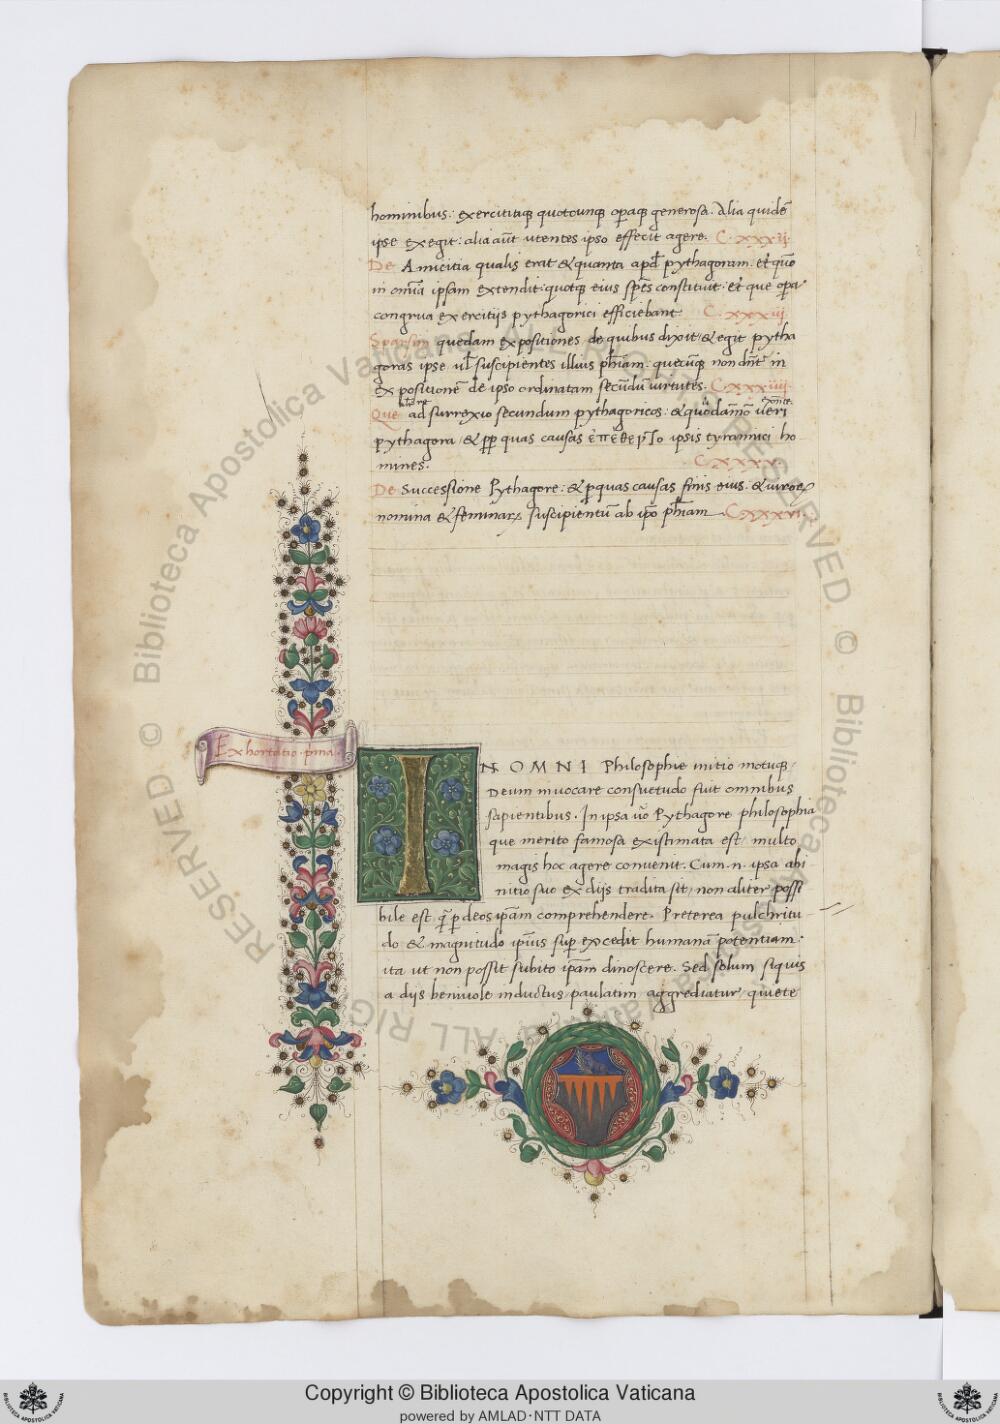 hominibus: exercitijq quotcunq opaq generosa. Alia quidē
ipse exegit: alia aūt utentes ipso effecit agere. C. xxxij.
De Amicitia qualis erat & quanta apd pythagoram: et quō
in omīa ipsam extendit: quotq eius spēs constituit: et que opa
congrua exercitijs pythagorici efficiebant C. xxxiij
Sparsim quedam expositiones de quibus dixit & egit pytha
goras ipse ul suscipientes illius phīam. quecūq non dnt in
expositionē de ipso ordinatam secūdū uirtutes. C xxxiiij
Que ad surrexio secundum pythagoricos: & quōdāmō ueri
pythagora & pp quas causas ipsis tyrannici ho
mines. C xxxv.
De Successione Pythagore: & p quas causas finis eius. & uiroꝝ
nomina & feminaꝝ suscipientū ab ipō phīam C xxxvi.
Exhortatio pma.
IN OMNI Philosophie initio motuq
Deum inuocare consuetudo fuit omnibus
sapientibus. In ipsa uō Pythagore philosophia
que merito famosa existimata est multo
magis hoc agere conuenit. Cum .n. ipsa abi
nitio suo ex dijs tradita sit, non aliter possi
bile est q p deos ipam comprehendere. Preterea pulchritu
do & magnitudo ipius sup excedit humanā potentiam:
ita ut non possit subito ipam dinoscere. Sed solum siquis
a dijs beniuole inductus paulatim aggrediatur, quiete
© Biblioteca Apostolica Vaticana ALL RIGHTS RESERVED © Biblioteca Apostolica Vaticana ALL RIGHTS RESERVED
Copyright © Biblioteca Apostolica Vaticana
powered by AMLAD·NTT DATA